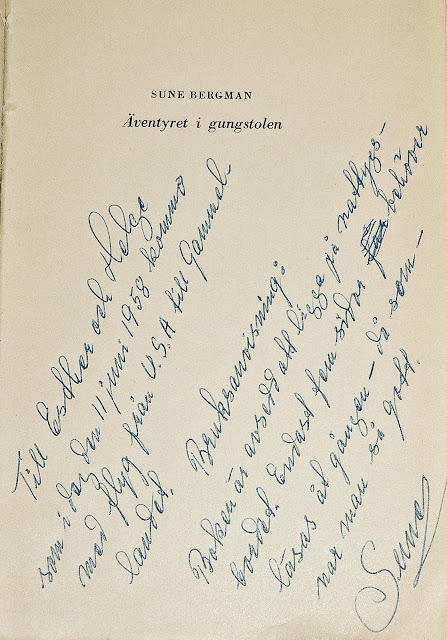 SUNE BERGMAN
Äventyret i gungstolen
Till Esther och Helge
som i dag den 11 juni 1958 kommo
med flyg från U.S.A till Gammel-
landet.
Bruksanvisning:
Boken är avsedd att ligga på nattygs-
bordet. Endast fem sidor behöver
läsas åt gången – då som-
nar man så gott.
Sune